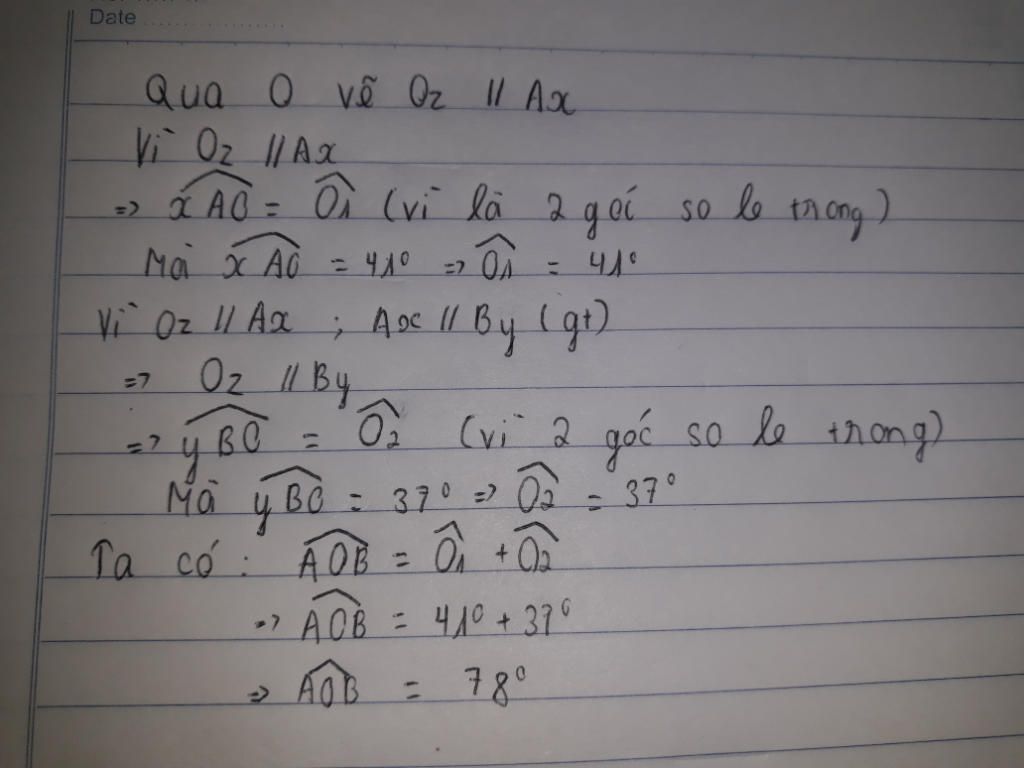 Date ....................
Qua O vẽ Oz // Ax
Vì Oz // Ax
=> $\widehat{xAO}$ = $\widehat{O_1}$ (vì là 2 góc so le trong)
Mà $\widehat{xAO}$ = 41° => $\widehat{O_1}$ = 41°
Vì Oz // Ax ; Ax // By (gt)
=> Oz // By
=> $\widehat{yBO}$ = $\widehat{O_2}$ (vì 2 góc so le trong)
Mà $\widehat{yBO}$ = 37° => $\widehat{O_2}$ = 37°
Ta có : $\widehat{AOB}$ = $\widehat{O_1}$ + $\widehat{O_2}$
=> $\widehat{AOB}$ = 41° + 37°
=> $\widehat{AOB}$ = 78°